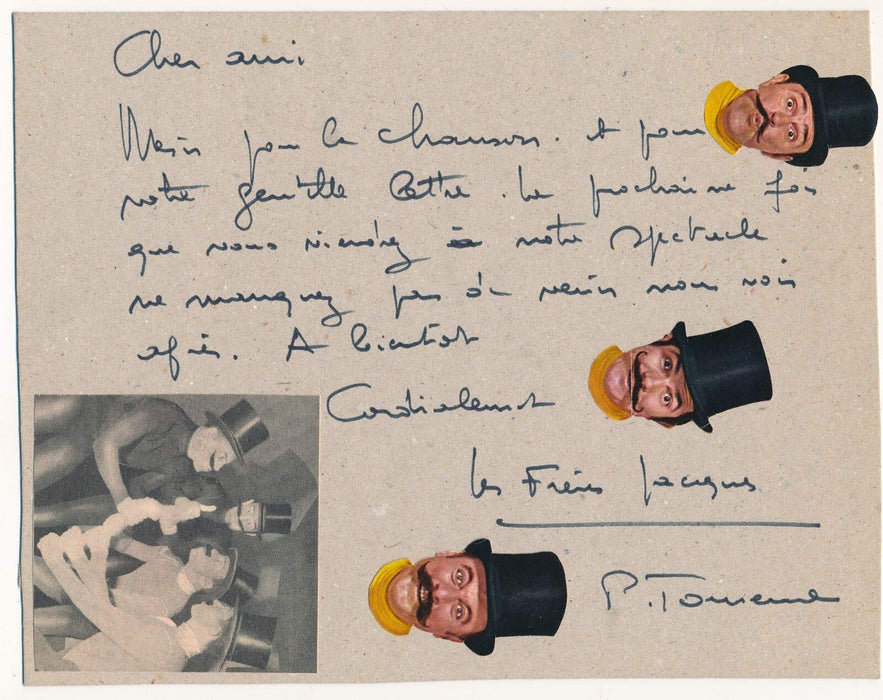 Cher ami
Merci pour la chanson. et pour
votre gentille lettre. La prochaine fois
que vous viendrez à notre spectacle
ne manquez pas de venir nous voir
après. A bientôt
Cordialement
Les Frères Jacques
P. Tourenne